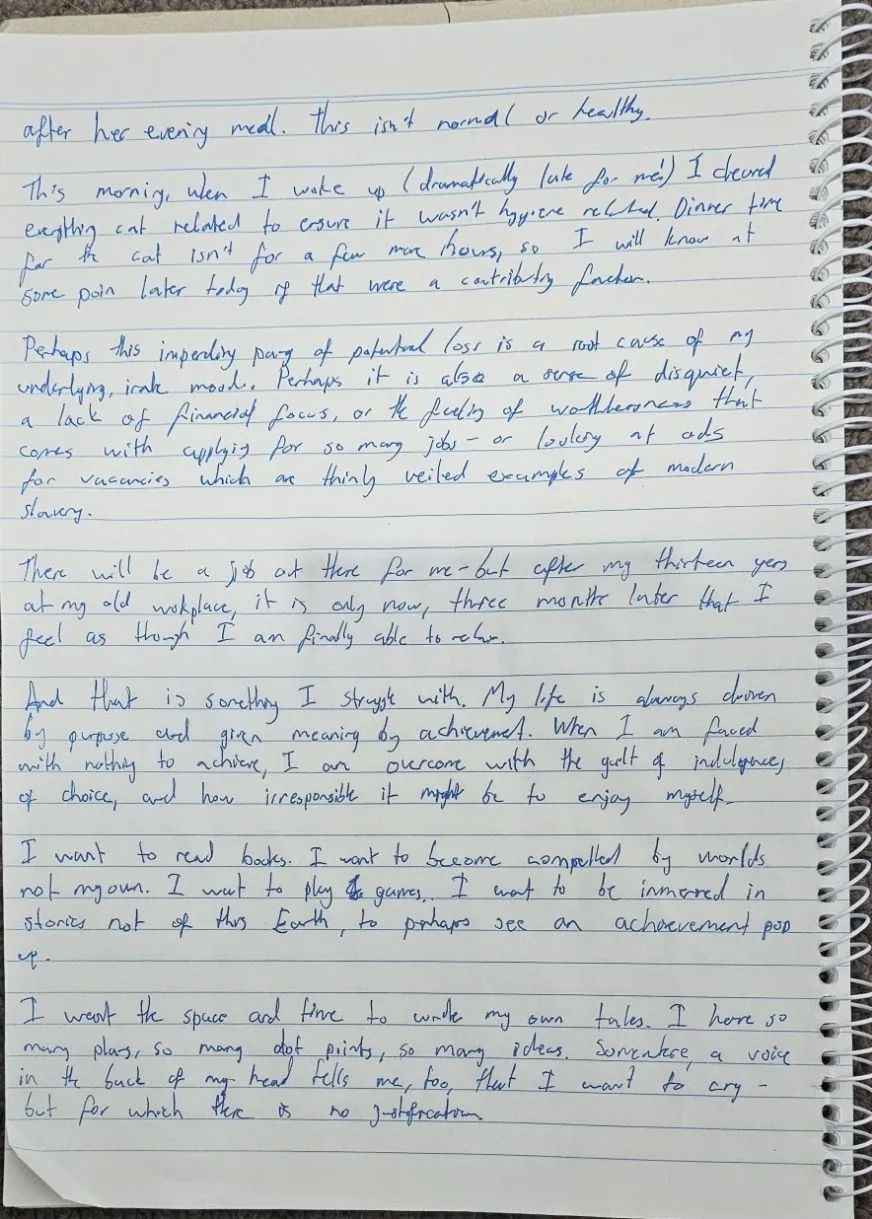 after her evening meal. This isn't normal or healthy.
This morning, when I woke up (dramatically late for me!) I cleared
everything cat related to ensure it wasn't hygiene related. Dinner time
for the cat isn't for a few more hours, so I will know at
some poin later today if that were a contributing factor.
Perhaps this impending pang of potential loss is a root cause of my
underlying, irate mood. Perhaps it is also a sense of disquiet,
a lack of financial focus, or the feeling of worthlessness that
comes with applying for so many jobs - or looking at ads
for vacancies which are thinly veiled examples of modern
slavery.
There will be a job out there for me - but after my thirteen years
at my old workplace, it is only now, three months later that I
feel as though I am finally able to relax.
And that is something I struggle with. My life is always driven
by purpose and given meaning by achievement. When I am faced
with nothing to achieve, I am overcome with the guilt of indulgence,
of choice, and how irresponsible it might be to enjoy myself.
I want to read books. I want to become compelled by worlds
not my own. I want to play games. I want to be immersed in
stories not of this Earth, to perhaps see an achievement pop
up.
I want the space and time to write my own tales. I have so
many plans, so many dot points, so many ideas. Somewhere, a voice
in the back of my head tells me, too, that I want to cry -
but for which there is no justification